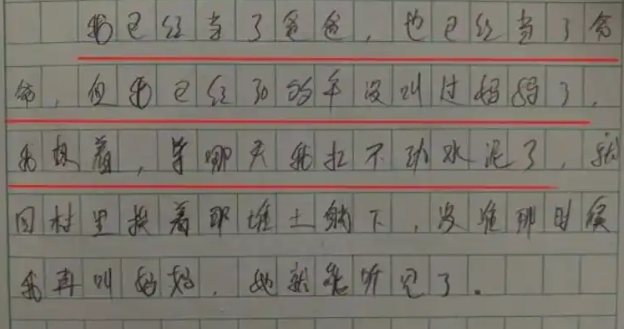 我已经当了爸爸，也已经当了爷
爷，但我已经30多年没叫过妈妈了，
我想着，等哪天我扛不动水泥了，就
回村里挨着那堆土躺下，没准那时候
我再叫妈妈，她就能听见了。